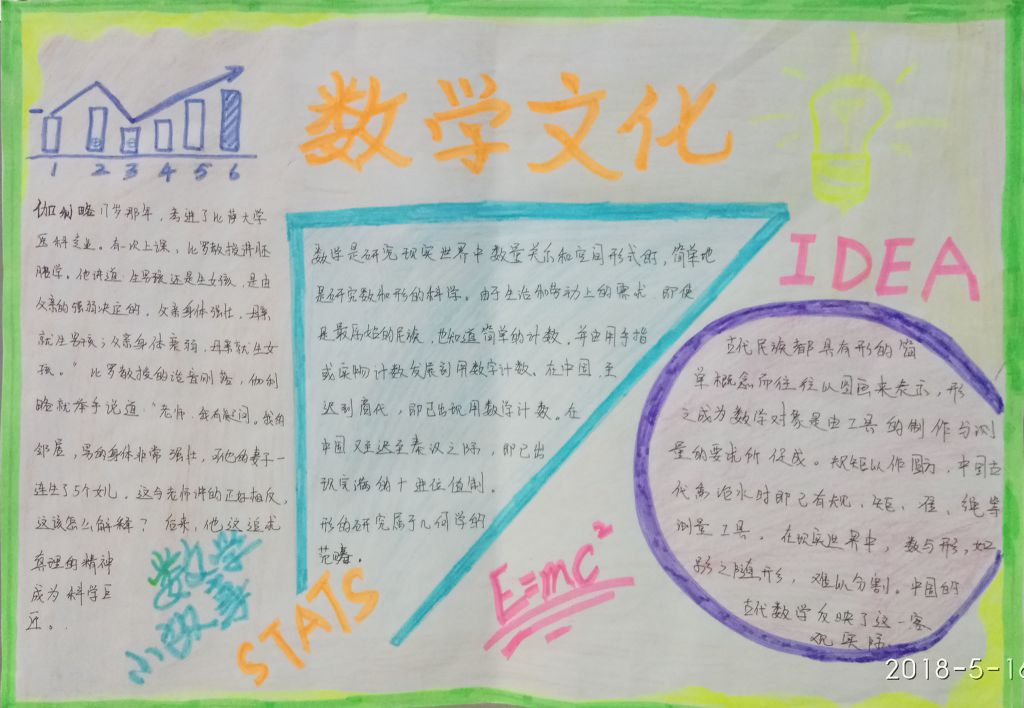 数学文化
1 2 3 4 5 6
伽利略17岁那年，考进了比萨大学
医科专业。有一次上课，比罗教授讲胚
胎学。他讲道：生男孩还是生女孩，是由
父亲的强弱决定的，父亲身体强壮，母亲
就生男孩；父亲身体衰弱，母亲就生女
孩。”比罗教授的话音刚落，伽利
略就举手说道：“老师，我有疑问。我的
邻居，男的身体非常强壮，可他的妻子一
连生了5个女儿，这与老师讲的正好相反，
这该怎么解释？后来，他这追求
真理的精神
成为科学巨
匠。
数学
小故事
STATS
数学是研究现实世界中数量关系和空间形式的，简单地
是研究数和形的科学。由于生活和劳动上的需求，即使
是最原始的民族，也知道简单的计数，并由用手指
或实物计数发展到用数字计数。在中国，至
迟到商代，即已出现用数学计数。在
中国又至迟至秦汉之际，即已出
现完满的十进位值制。
形的研究属于几何学的
范畴。
E=mc²
IDEA
古代民族都具有形的简
单概念而往往以图画来表示，形
之成为数学对象是由工具的制作与测
量的要求所促成。规矩以作圆方，中国古
代禹治水时即已有规、矩、准、绳等
测量工具。在现实世界中，数与形，如
影之随形，难以分割。中国的
古代数学反映了这一客
观实际
2018-5-16